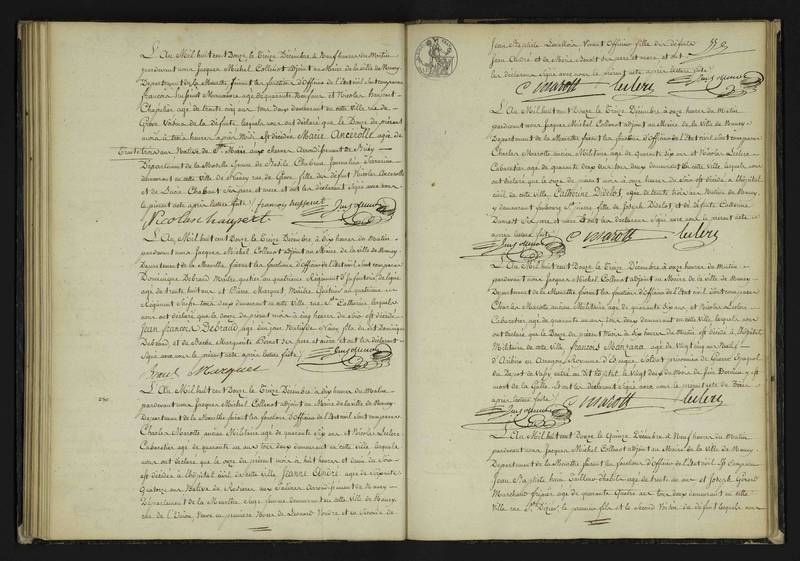 L'An Mil huit cent Douze le Treize Décembre à Neuf heures du Matin
pardevant nous Jacques Michel Collenot adjoint au Maire de la ville de Nancy
Département de la Meurthe faisant les fonctions d'officier de l'état civil sont comparus
François agé de quarante Neuf ans et Nicolas
Chapelier agé de trente cinq ans tous deux demeurant en cette ville rue de
Grève Voisins de la défunte lesquels nous ont déclaré que le Douze du présent
mois à trois heures après Midi est décédée Marie Ancerolle agée de
Trente trois ans Native de Ste Marie aux chênes arrondissement de Briey
Département de la Moselle Epouse de Chabrien Journalier
demeurant en cette ville de Nancy rue de Grève fille des défunts Nicolas Ancerolle
et de Chabant ses père et mère et ont les déclarants signé avec nous
le présent acte après lecture faite
L'An Mil huit cent Douze le Treize Décembre à Dix heures du Matin
pardevant nous Jacques Michel Collenot adjoint au Maire de la ville de Nancy
Département de la Meurthe faisant les fonctions d'officier de l'état civil sont comparus
Dominique Debraud Maître au quatrième Régiment d'Infanterie de ligne
agé de trente huit ans et Pierre Marquet Maître au quatrième
Régiment tous deux demeurant en cette ville rue Ste Catherine lesquels
nous ont déclaré que le onze du présent mois à cinq heures du soir est décédé
Jean François Debraud agé de jours Natif de Nancy fils du dit Dominique
Debraud et de Marguerite ses père et mère et ont les déclarants
signé avec nous le présent acte après lecture faite
L'An Mil huit cent Douze le Treize Décembre à Dix heures du Matin
pardevant nous Jacques Michel Collenot adjoint au Maire de la ville de Nancy
Département de la Meurthe faisant les fonctions d'officier de l'état civil sont comparus
Charles Marotte ancien Militaire agé de quarante six ans et Nicolas Leclerc
Cabaretier agé de quarante un ans tous deux demeurant en cette ville lesquels
nous ont déclaré que le onze du présent mois à huit heures et demie du soir
est décédée à l'hôpital civil de cette ville Jeanne André agée de soixante
Quatorze ans Native de arrondissement de Nancy
Département de la Meurthe demeurant en cette ville de Nancy
rue de l'Union, Veuve en premières Noces de Léonard et en secondes de
Jean Baptiste Vivant officier fille des défunts
Jean André et de Marie ses père et mère et ont
les déclarants signé avec nous le présent acte après lecture faite
C Marotte leclerc
L'An Mil huit cent Douze le Treize Décembre à onze heures du Matin
pardevant nous Jacques Michel Collenot adjoint au Maire de la Ville de Nancy
Département de la Meurthe faisant les fonctions d'officier de l'état civil sont comparus
Charles Marotte ancien Militaire agé de quarante six ans et Nicolas Leclerc
Cabaretier agé de quarante un ans tous deux demeurant en cette ville, lesquels nous
ont déclaré que le onze du présent mois à onze heures du soir est décédée à l'hôpital
civil de cette ville, Catherine Didelot, agée de trente trois ans Native de Nancy
y demeurant faubourg St Pierre fille de Joseph Didelot et de défunte Catherine
ses père et mère et ont les déclarants signé avec nous le présent acte
après lecture faite
C Marotte leclerc
L'An Mil huit cent Douze le Treize Décembre à onze heures du Matin
pardevant nous Jacques Michel Collenot adjoint au Maire de la Ville de Nancy
Département de la Meurthe faisant les fonctions d'officier de l'état civil sont comparus
Charles Marotte ancien Militaire agé de quarante six ans et Nicolas Leclerc
Cabaretier agé de quarante un ans tous deux demeurant en cette ville, lesquels nous
ont déclaré que le Douze du présent Mois à dix heures du Matin est décédé à l'hôpital
Militaire de cette ville, François Manzana agé de vingt cinq ans Natif
en Aragon, Royaume d'Espagne, Soldat prisonnier de Guerre Espagnol
du Dépôt de entré au dit hôpital le vingt deux du Mois de
mort de la et ont les déclarants signé avec nous le présent acte
après lecture faite
C Marotte leclerc
L'An Mil huit cent Douze le Quinze Décembre à Neuf heures du Matin
pardevant nous Jacques Michel Collenot adjoint au Maire de la Ville de Nancy
Département de la Meurthe faisant les fonctions d'officier de l'état civil sont comparus
Jean Baptiste Tailleur d'habits agé de trente six ans et Joseph Gérard
Marchand fripier agé de quarante Quatre ans tous deux demeurant en cette
Ville rue St Dizier, le premier fils et le second Voisin du défunt lesquels nous